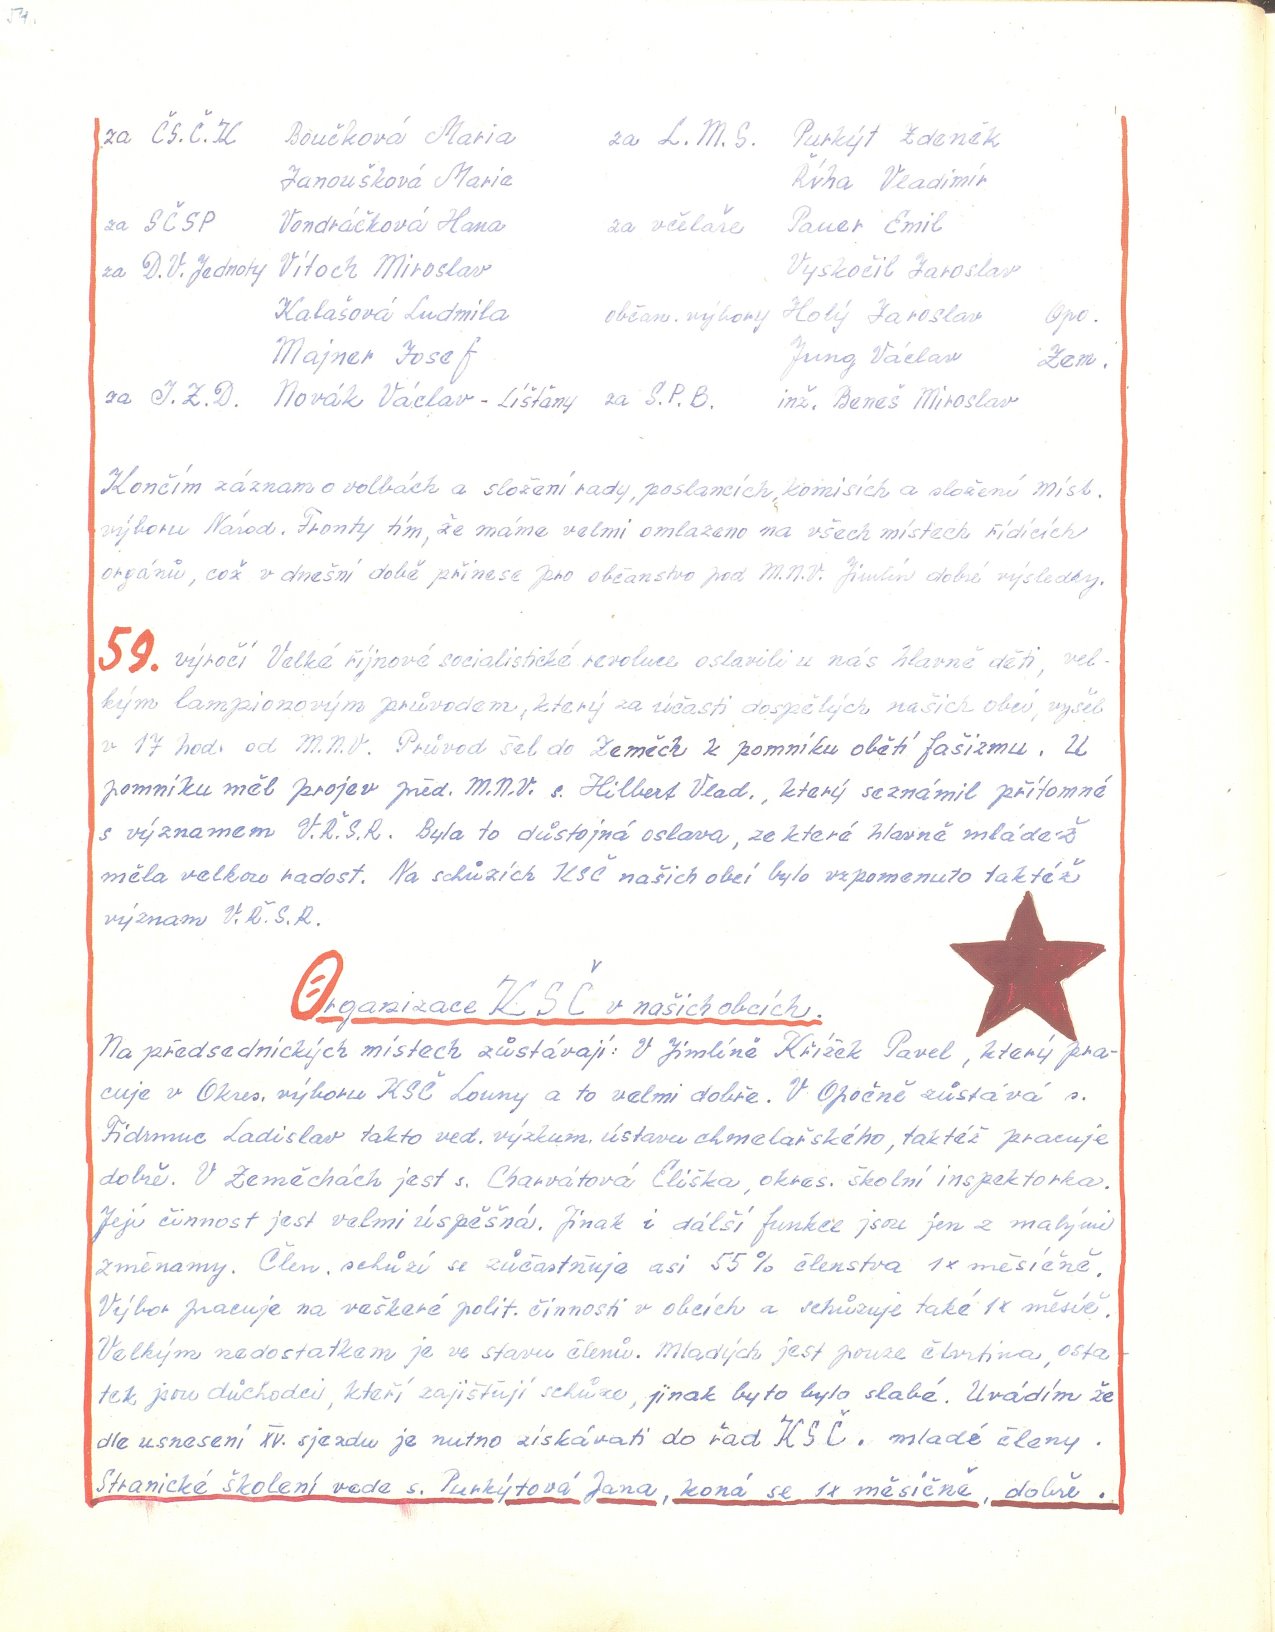 54.
za ČS.Č.K Boučková Maria za L.M.S. Purkýt Zdeněk
Janoušková Marie Říha Vladimír
za SČSP Vondráčková Hana za včelaře Pauer Emil
za D.V. Jednoty Vítoch Miroslav Vyskočil Jaroslav
Kalašová Ludmila občan. výbory Holý Jaroslav Opo.
Majner Josef Jung Václav Zem.
za J.Z.D. Novák Václav - Líšťany za S.P.B. inž. Beneš Miroslav
Končím záznam o volbách a složení rady, poslancích, komisích a složení míst.
výboru Národ. Fronty tím, že máme velmi omlazeno na všech místech řídících
orgánů, což v dnešní době přinese pro občanstvo pod M.N.V. Jimlín dobré výsledky.
59. výročí Velké říjnové socialistické revoluce oslavili u nás hlavně děti, vel-
kým lampionovým průvodem, který za účasti dospělých našich obcí, vyšel
v 17 hod. od M.N.V. Průvod šel do Zeměch k pomníku obětí fašizmu. U
pomníku měl projev před. M.N.V. s. Hilbert Vlad., který seznámil přítomné
s významem V.Ř.S.R. Byla to důstojná oslava, ze které hlavně mládež
měla velkou radost. Na schůzích KSČ našich obcí bylo vzpomenuto taktéž
význam V.Ř.S.R.
Organizace KSČ v našich obcích.
Na předsednických místech zůstávají: V Jimlíně Křížek Pavel, který pra-
cuje v Okres. výboru KSČ Louny a to velmi dobře. V Opočně zůstává s.
Fidrmuc Ladislav takto ved. výzkum. ústavu chmelařského, taktéž pracuje
dobrě. V Zeměchách jest s. Charvátová Eliška, okres. školní inspektorka.
Její činnost jest velmi úspěšná. Jinak i dálší funkce jsou jen z malými
změnamy. Člen. schůzí se zůčastňuje asi 55% členstva 1x měsíčně.
Výbor pracuje na veškeré polit. činnosti v obcích a schůzuje také 1x měsíč.
Velkým nedostatkem je ve stavu členů. Mladých jest pouze čtvrtina, osta-
tek jsou důchodci, kteří zajišťují schůze, jinak byto bylo slabé. Uvádím že
dle usnesení XV. sjezdu je nutno získávati do řad KSČ. mladé členy.
Stranické školení vede s. Purkýtová Jana, koná se 1x měsíčně, dobře.